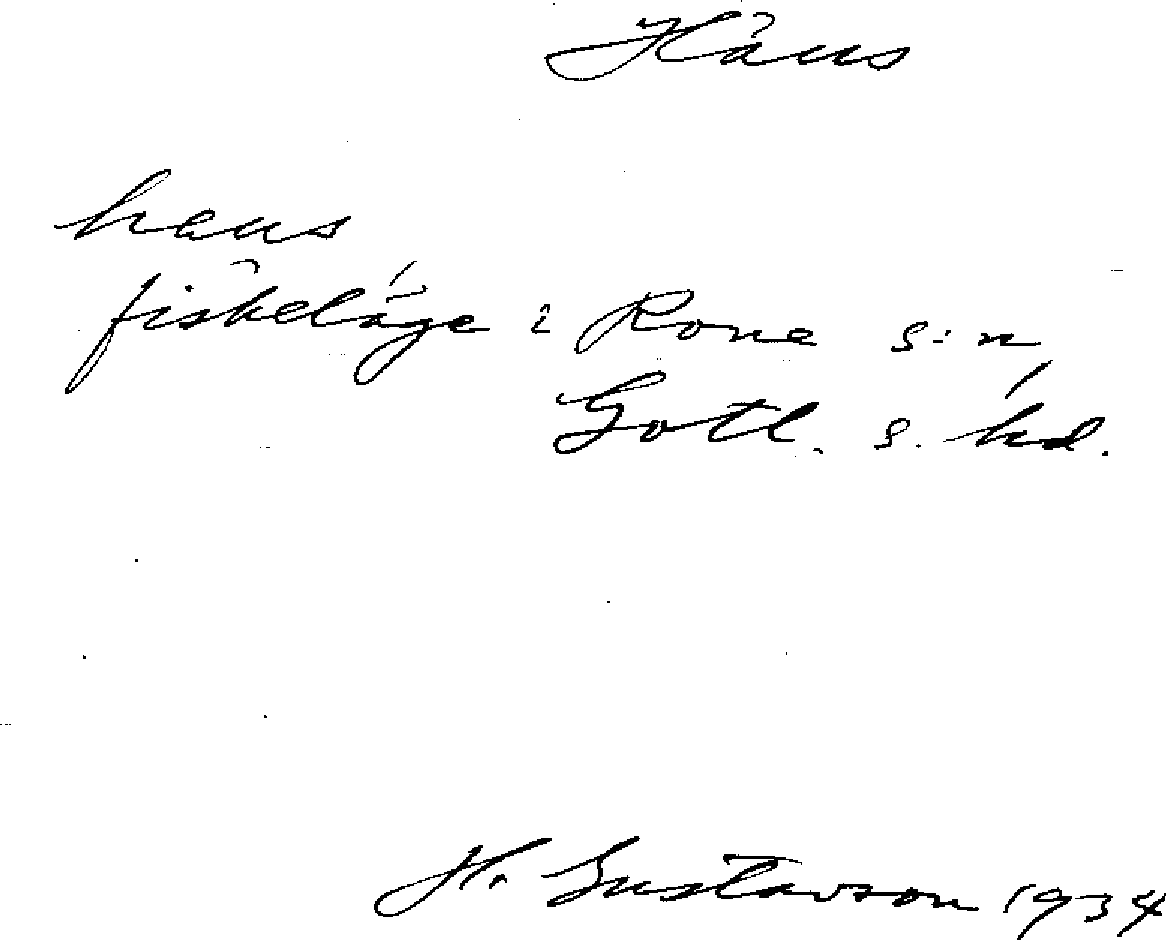 Håus
haus
fiskeläge i Rone s:n,
Gotl. s. hd.
H. Gustavson 1934